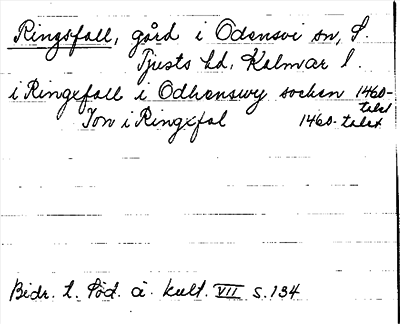 Ringsfall, gård i Odensvi sn, S.
Tjusts hd, Kalmar l.
i Ringxfall i Odhenswy socken 1460-talet
Jon i Ringxfal 1460-talet
Bidr. t. Söd. å. kult. VII s. 134